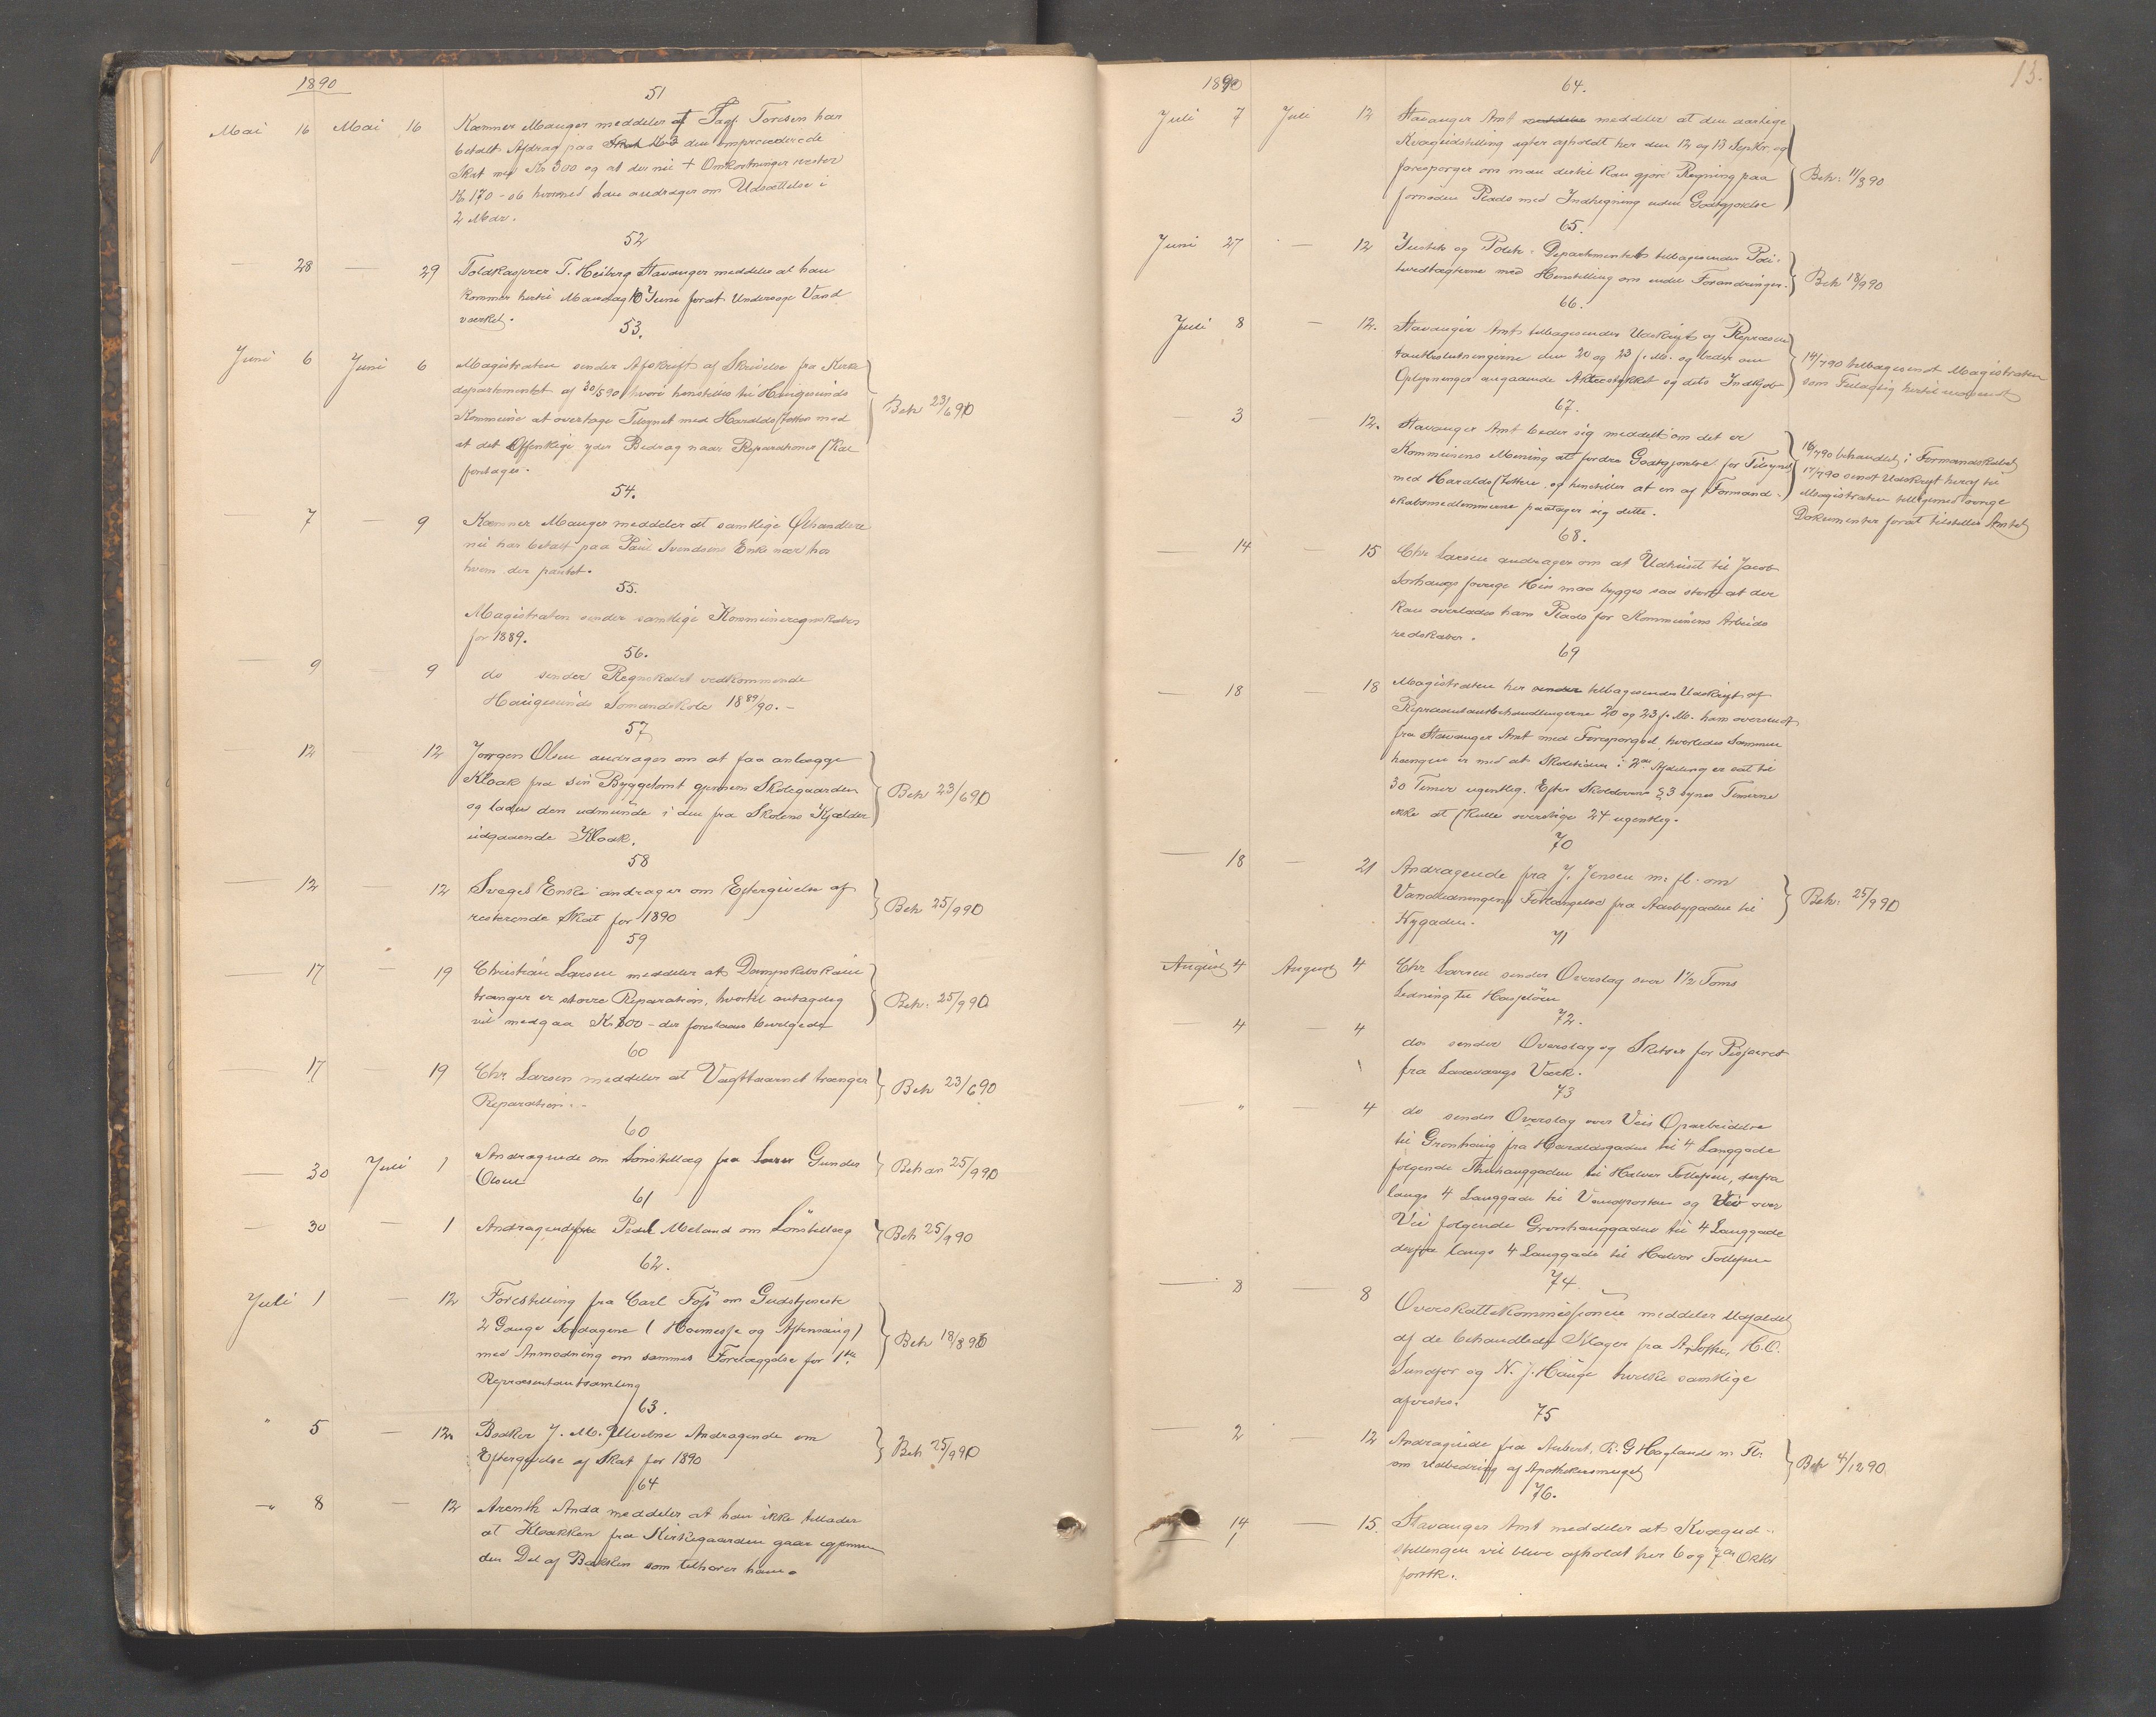 1890
51
Mai 16 Mai 16 Kæmner Mauger meddeler at Sagf. Toresen har
betalt Afdrag paa den improviderede
Skat med Kr 300 og at der nu + Omkostninger rester
Kr 170-06 hvormed han andrager om Udsættelse i
2 Mdr.
52
— 28 — 29 Toldkasserer T. Heiberg Stavanger meddeler at han
kommer hertil Mandag Juni forat Undersøge Vand
værket.
53.
Juni 6 Juni 6 Magistraten sender Afskrift af Skrivelse fra Kirke
departementet af 30/5 90 hvori henstilles til Haugesunds
Kommune at overtage Tilsynet med Haralds Støtten mod
at det Offentlige yder Bidrag naar Reparationer skal
foretages.
Beh 23/6 90
54.
— 7 — 9 Kæmner Mauger meddeler at samtlige Ølhandlere
nu har betalt paa Paul Svendsens Enke nær hos
hvem der pantet.
55.
Magistraten sender samtlige Kommuneregnskaber
for 1889.
56.
— 9 — 9 do sender Regnskabet vedkommende
Haugesunds Sømandskole 18 89/90. —
57
— 12 — 12 Jørgen Olsen andrager om at faa anlægge
Kloak fra sin Byggetomt gjennem Skolegaarden
og lader den udmunde i den fra Skolens Kjælder
udgaaende Kloak.
Beh 23/6 90
58
— 12 — 12 Sveges Enke andrager om Eftergivelse af
resterende Skat for 1890
Beh 25/9 90
59
— 17 — 19 Christian Larsen meddeler at Dampskibskaien
trænger en større Reparation, hvortil antagelig
vil medgaa Kr 800 - der foreslaaes bevilgede
Beh. 25/9 90
60
— 17 19 Chr Larsen meddeler at Vagttaarnet trænger
Reparation. -
Beh 23/6 90
60
— 30 Juli 1 Andragende om Lønstillæg fra Lærer Gunder
Olsen
Behan 25/9 90
61
— 30 — 1 Andragende fra Pedel Meland om Lønstillæg
Beh 25/9 90
62.
Juli 1 — 12 Forestilling fra Carl Foss om Gudstjeneste
2 Gange Søndagene (Høimesse og Aftensang)
med Anmodning om sammes Forelæggelse for 1ste
Repræsentantsamling
Beh 18/8 90
63.
" 5 — 12. Bødker J. M. Andragende om
Eftergivelse af Skat for 1890
Beh 25/9 90
64
— " 8 — 12 Arenth Anda meddeler at han ikke tillader
at Kloakken fra Kirkegaarden gaar igjennem
den Del af Bækken som tilhører ham.
13.
1890
64.
Juli 7 Juli 12 Stavanger Amt meddeler at den aarlige
Kvægudstilling agter afholdt her den 12 og 13 Septbr. og
forespørger om man dertil kan gjøre Regning paa
fornøden Plads med Indhegning uden Godtgjørelse
Beh. 11/8 90
65.
Juni 27 — 12 Justits og Politi-Departementet tilbagesender Poli-
tivedtægterne med Henstilling om endel Forandringer.
Beh 18/9 90
66.
Juli 8 — 12. Stavanger Amt tilbagesender Udskrift af Repræsen
tantbeslutningerne den 20 og 23 f. M. og beder om
Oplysninger angaaende Aktiestykket og dets Indkjøb
14/7 90 tilbagesendt Magistraten
som Feilagtig hertil
67.
3 — 12. Stavanger Amt beder sig meddelt om det er
Kommunens Mening at fordre Godtgjørelse for Tilsynet
med Haralds Støtten, og henstiller at en af Formand-
skabsmedlemmerne paatager sig dette.
16/7 90 behandlet i Formandskabet
17/7 90 sendt Udskrift heraf til
Magistraten tilligemed øvrige
Dokumenter forat tilstilles Amtet
68.
— 14 — 15 Chr Larsen andrager om at Udhuset til Jacob
Sørhaugs forrige Hus maa bygges saa stort at der
kan overlades ham Plads for Kommunens Arbeids
redskaber.
69
— 18 — 18 Magistraten her tilbagesender Udskrift af
Repræsentantbehandlingerne 20 og 23 f. M. ham oversendt
fra Stavanger Amt med Forespørgsel, hvorledes Sammen
hængen er med at Skoletiden i 2den Afdeling er sat til
30 Timer ugentlig. Efter Skoleloven § 3 synes Timerne
ikke at skulle overstige 24 ugentlig.
70
— 18 — 21 Andragende fra J. Jensen m. fl. om
Vandledningens Forlængelse fra Aasbygaden til
Nygaden.
Beh. 25/9 90
71
August 4 August 4 Chr Larsen sender Overslag over 1 1/2 Toms
Ledning til Hasseløen
72.
— 4 — 4 do sender Overslag og Skitser for Pissoiret
fra Laxevaags Værk.
73
— " — 4 do sender Overslag over Veis Oparbeidelse
til Grønhaug fra Haraldsgaden til 4 Langgade
følgende Thuhauggaden til Halvor Tollefsen, derfra
langs 4 Langgade til Vandposten og over
Vei følgende Grønhauggaden til 4 Langgade
derfra langs 4 Langgade til Halvor Tollefsen
74
— 8 — 8 Overskattekommissionen meddeler Udfaldet
af de behandlede Klager fra H. C.
Sundfør og N. J. Hauge hvilke samtlige
afvistes.
75
— 2 — 12 Andragende fra Aubert, R. G Haglands m. Fl.
om Udbedring af Apothekersmuget
Beh 4/12 90
76.
— 14 — 15. Stavanger Amt meddeler at Kvægud-
stillingen vil blive afholdt her 6 og 7de Oktbr
førstk.